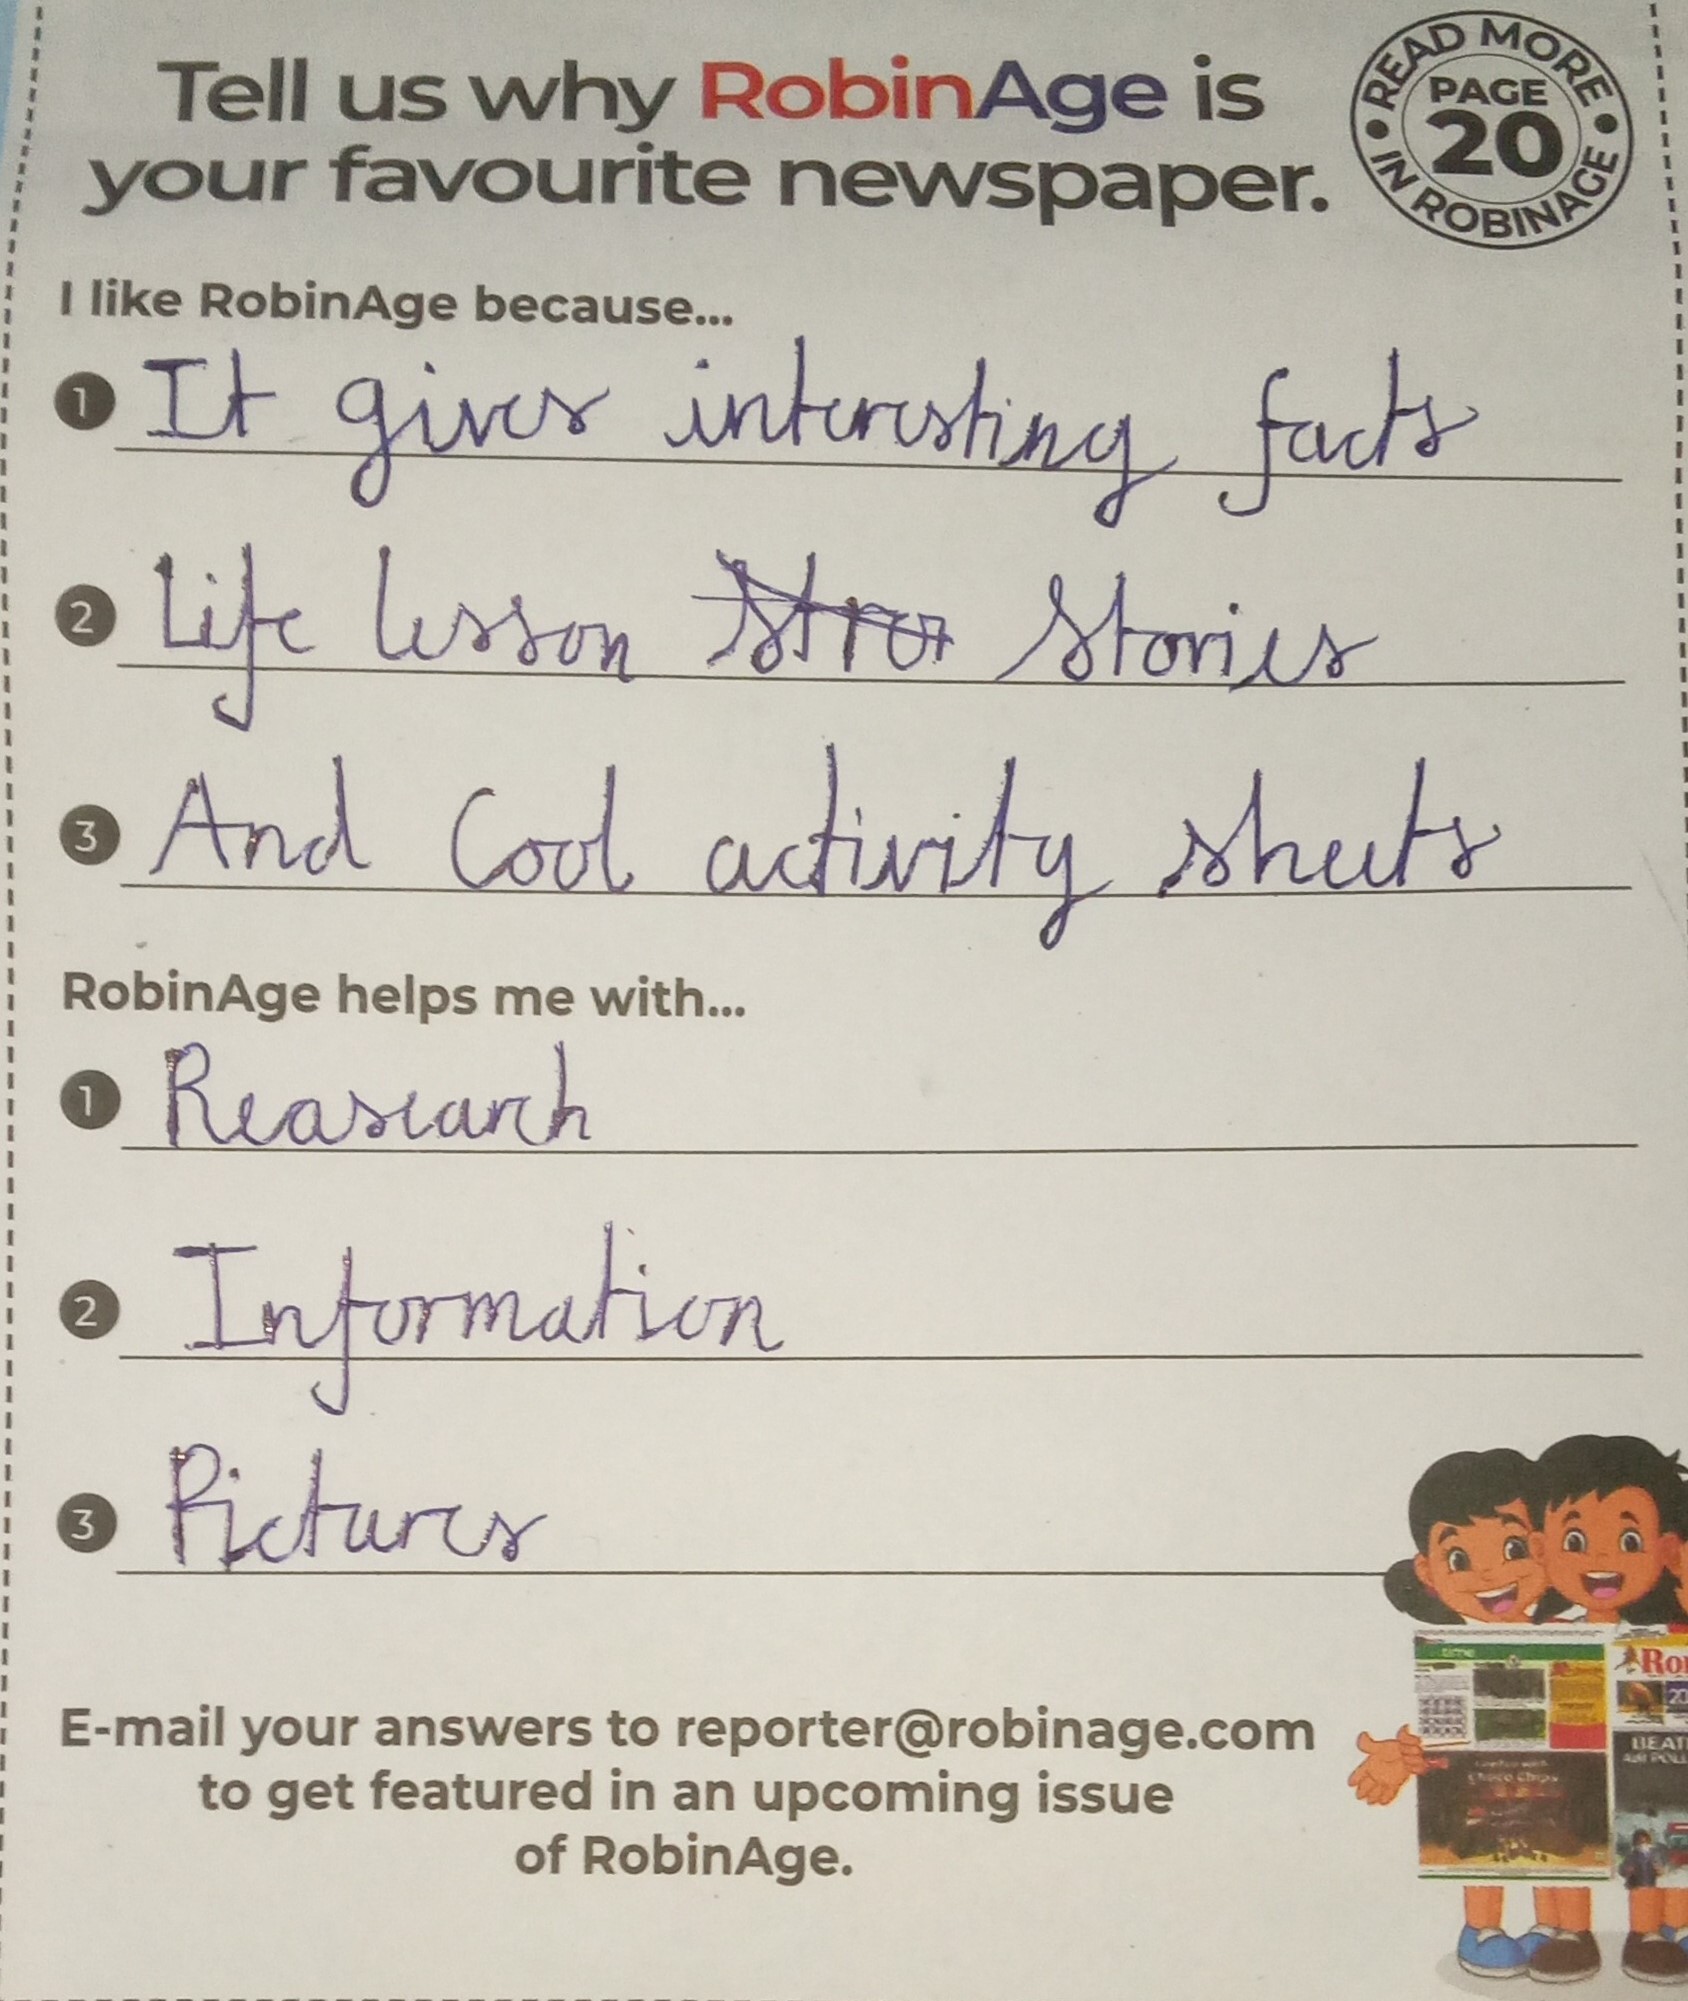 Tell us why RobinAge is
your favourite newspaper.
READ MORE
PAGE
20
IN ROBINAGE
I like RobinAge because...
1 It gives interesting facts
2 Life lesson stories
3 And Cool activity sheets
RobinAge helps me with...
1 Reasearch
2 Information
3 Pictures
E-mail your answers to reporter@robinage.com
to get featured in an upcoming issue
of RobinAge.
time
Choco Chips